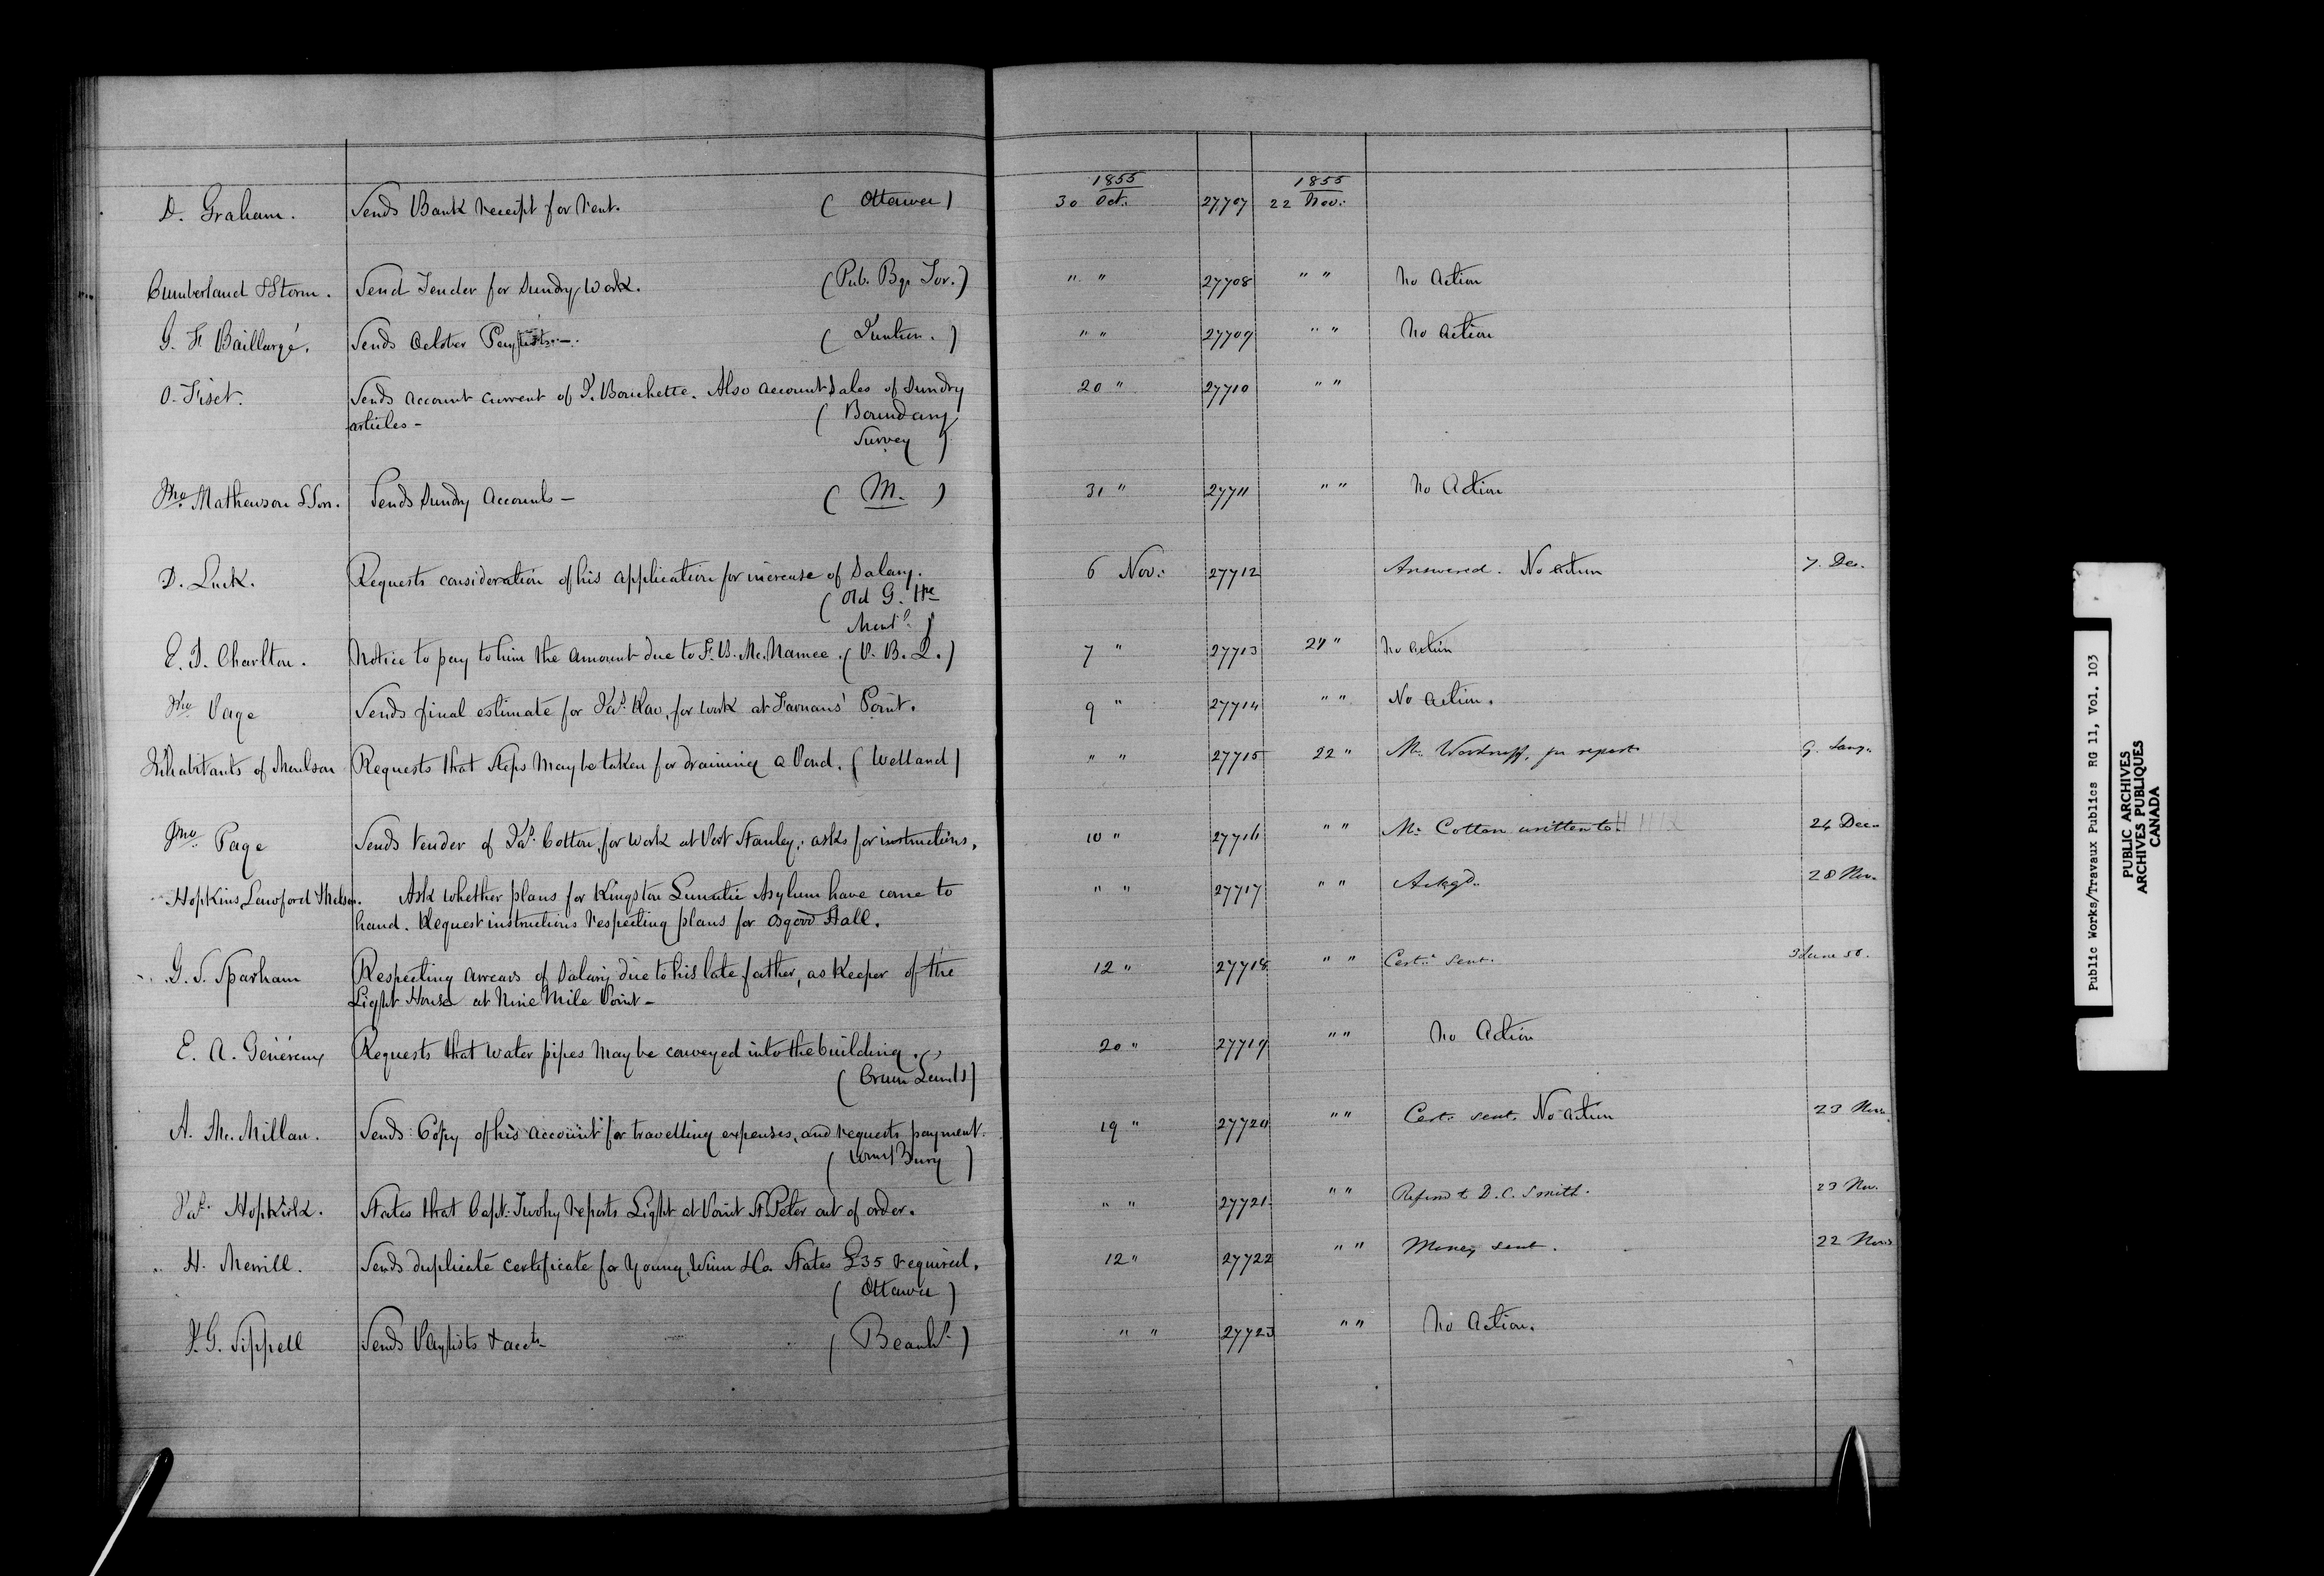 1855 1855
D. Graham. Sends Bank receipt for rent. (Ottawa) 30 Oct. 27707 22 Nov.
Cumberland & Storm. Send Tender for Sundry Work. (Pub. Bgs Tor.) " " 27708 " " No Action
G. F. Baillargé. Sends October Paylists. " " 27709 " " No Action
O. Fiset. Sends account current of J. Bouchette. Also account Sales of Sundry 20 " 27710 " "
articles - (Boundary
Survey)
Jno. Mathewson & Son. Sends Sundry Accounts - (M.) 31 " 27711 " " No Action
D. Luck. Requests consideration of his application for increase of Salary. 6 Nov. 27712 Answered. No action 7. Dec.
(Old G. Hse
Montl.)
E. J. Charlton. Notice to pay to him the amount due to F. B. McNamee. 7 " 27713 24 " No action
Jno Page Sends final estimate for Jas. Rae, for work at Farrans' Point. 9 " 27714 " " No action.
Inhabitants of Requests that Steps may be taken for draining a Pond. (Welland) " " 27715 22 " Mr. Woodruff, for report
Jno. Page Sends tender of Jas. Cotton, for work at Port Stanley; asks for instructions. 10 " 27716 " " Mr. Cotton written to. 24 Dec.
Hopkins, Lawford & Nelson. Ask whether plans for Kingston Lunatic Asylum have come to " " 27717 " " Ackgd. 28 Nov.
hand. Request instructions respecting plans for Osgood Hall.
G. S. Sparham Respecting arrears of Salary due to his late father, as Keeper of the 12 " 27718 " " Cert. sent. 3 June 56.
Light House at Nine Mile Point -
E. A. Généreux Requests that water pipes may be conveyed into the building. 20 " 27719 " " No Action
(Crown Lands)
A. McMillan. Sends Copy of his account for travelling expenses, and requests payment. 19 " 27720 " " Cert. sent. No action 23 Nov.
Jas. Hopkirk. States that Capt. Twohy reports Light at Point St. Peter out of order. " " 27721 " " Refer'd to D. C. Smith. 23 Nov.
H. Merrill. Sends duplicate certificate for Young, Winn & Co. States £35 required. 12 " 27722 " " Money sent. 22 Nov.
(Ottawa)
J. G. Sippell Sends Paylists & accts (Beauhs.) " " 27723 " " No Action.
Public Works/Travaux Publics RG 11, Vol. 103
PUBLIC ARCHIVES
ARCHIVES PUBLIQUES
CANADA